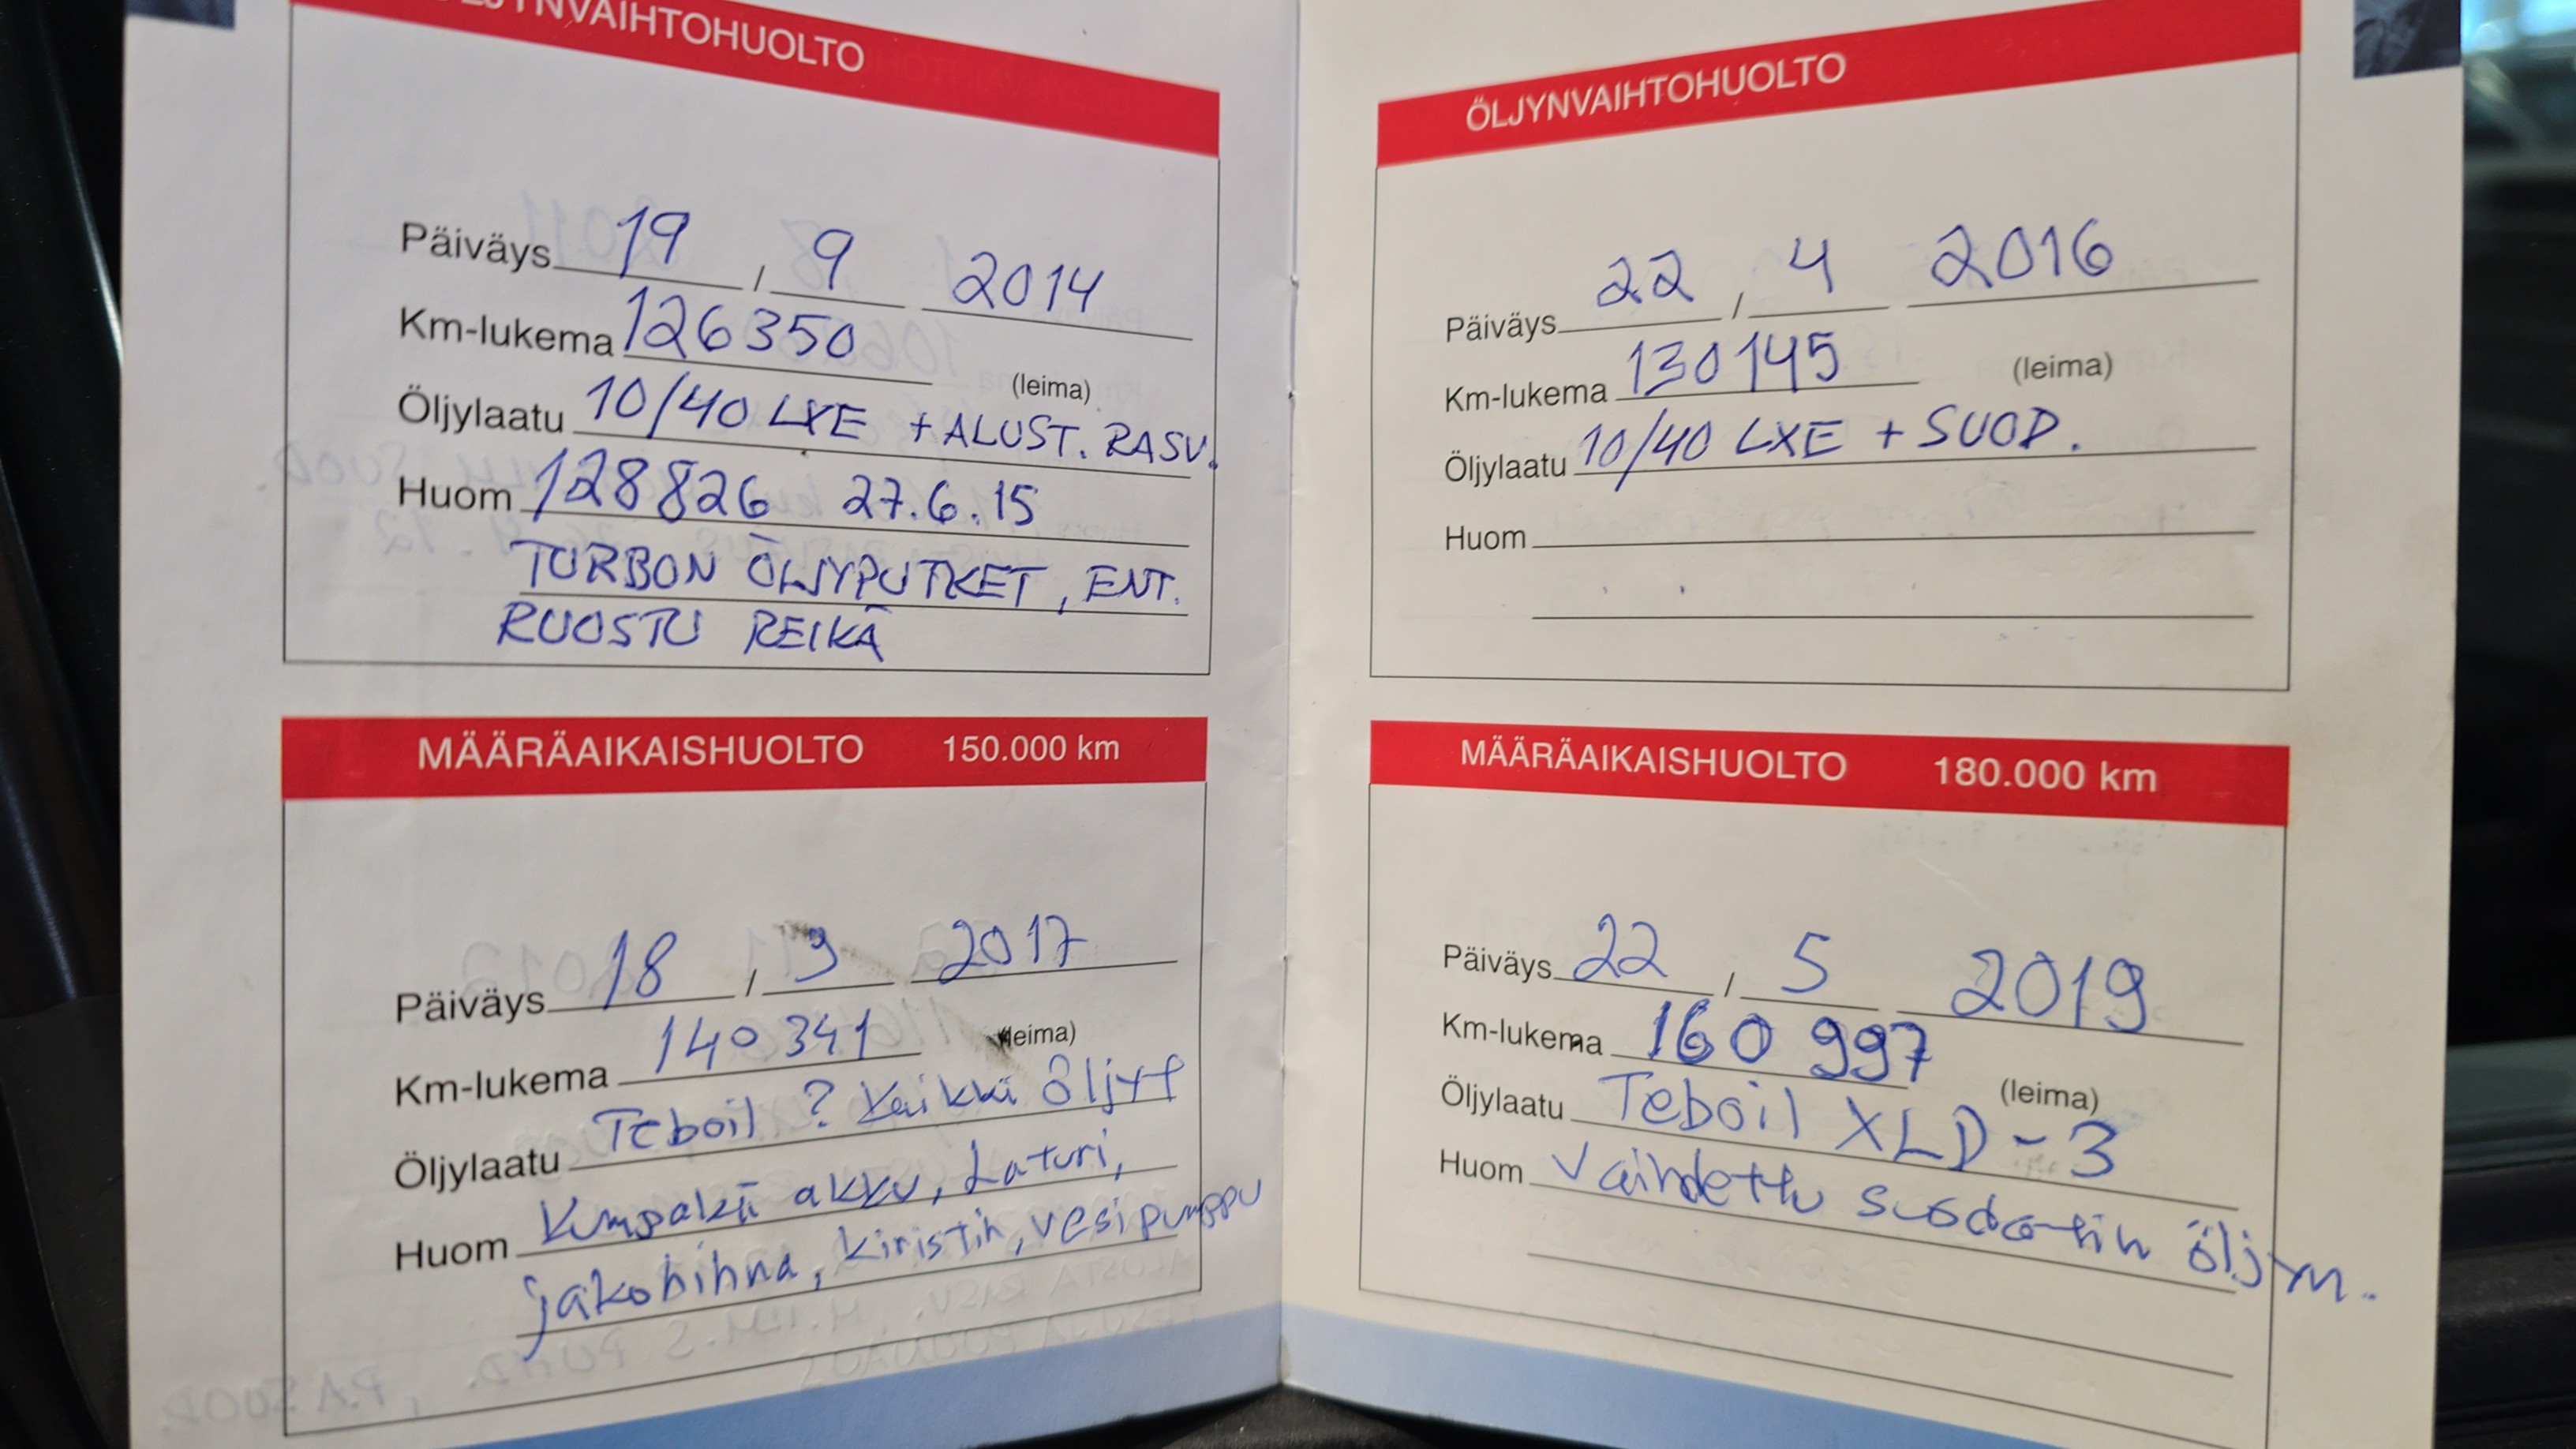 ÖLJYNVAIHTOHUOLTO
Päiväys 19 / 9 2014
Km-lukema 126350
(leima)
Öljylaatu 10/40 LXE + ALUST. RASV.
Huom 128826 27.6.15
TURBON ÖLJYPUTKET, ENT.
RUOSTU REIKÄ
MÄÄRÄAIKAISHUOLTO 150.000 km
Päiväys 18 / 3 2017
Km-lukema 140341
(leima)
Öljylaatu Teboil ? Kaikki öljyt
Huom akku, Laturi,
jakohihna, kiristin, vesipumppu
ÖLJYNVAIHTOHUOLTO
Päiväys 22 / 4 2016
Km-lukema 130145
(leima)
Öljylaatu 10/40 LXE + SUOD.
Huom
MÄÄRÄAIKAISHUOLTO 180.000 km
Päiväys 22 / 5 2019
Km-lukema 160 997
(leima)
Öljylaatu Teboil XLD-3
Huom Vaihdettu suodatin öljyn.